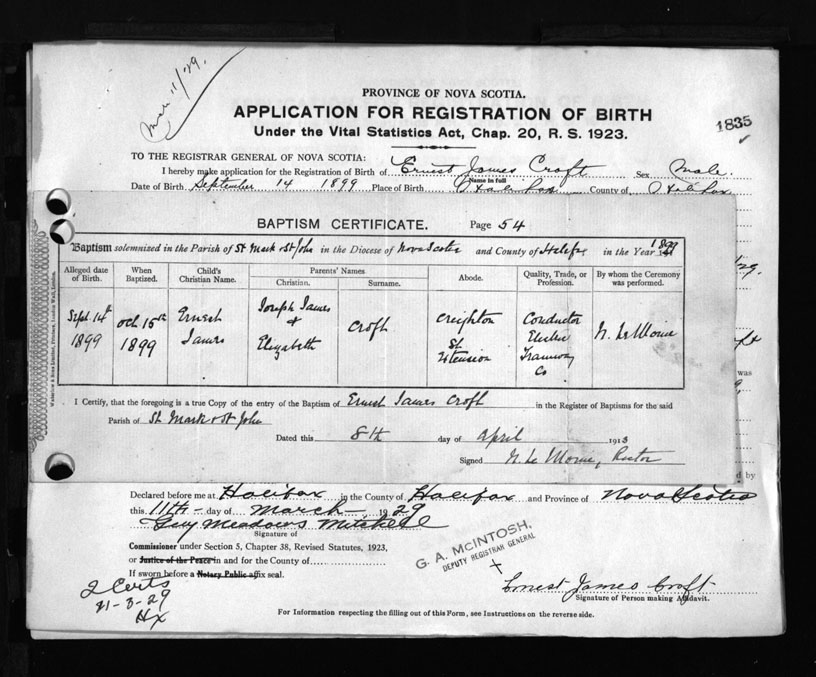 Mar 11/29.
PROVINCE OF NOVA SCOTIA.
APPLICATION FOR REGISTRATION OF BIRTH
Under the Vital Statistics Act, Chap. 20, R. S. 1923.
1835
TO THE REGISTRAR GENERAL OF NOVA SCOTIA:
I hereby make application for the Registration of Birth of Ernest James Croft Sex Male
Name in full
Date of Birth September 14 1899 Place of Birth Halifax County of Halifax
BAPTISM CERTIFICATE. Page 54
Baptism solemnized in the Parish of St Mark & St John in the Diocese of Nova Scotia and County of Halifax in the Year 1899
Alleged date of Birth. When Baptized. Child's Christian Name. Parents' Names Christian. Surname. Abode. Quality, Trade, or Profession. By whom the Ceremony was performed.
Sept. 14th 1899 Oct 15th 1899 Ernest James Joseph James & Elizabeth Croft Creighton St Extension Conductor Tramway Co N. LeMoine
I Certify, that the foregoing is a true Copy of the entry of the Baptism of Ernest James Croft in the Register of Baptisms for the said
Parish of St Mark & St John
Dated this 8th day of April 1913
Signed N. Le Moine, Rector
Waterlow & Sons Limited, Printers, London Wall, London.
was
d by
Declared before me at Halifax in the County of Halifax and Province of Nova Scotia
this 11th day of March 1929
Guy Meadows Mitchell
Signature of
Commissioner under Section 5, Chapter 38, Revised Statutes, 1923,
or Justice of the Peace in and for the County of
If sworn before a Notary Public affix seal.
G. A. McINTOSH,
DEPUTY REGISTRAR GENERAL
2 Certs
21-3-29
Hx
Ernest James Croft
Signature of Person making Affidavit.
For Information respecting the filling out of this Form, see Instructions on the reverse side.